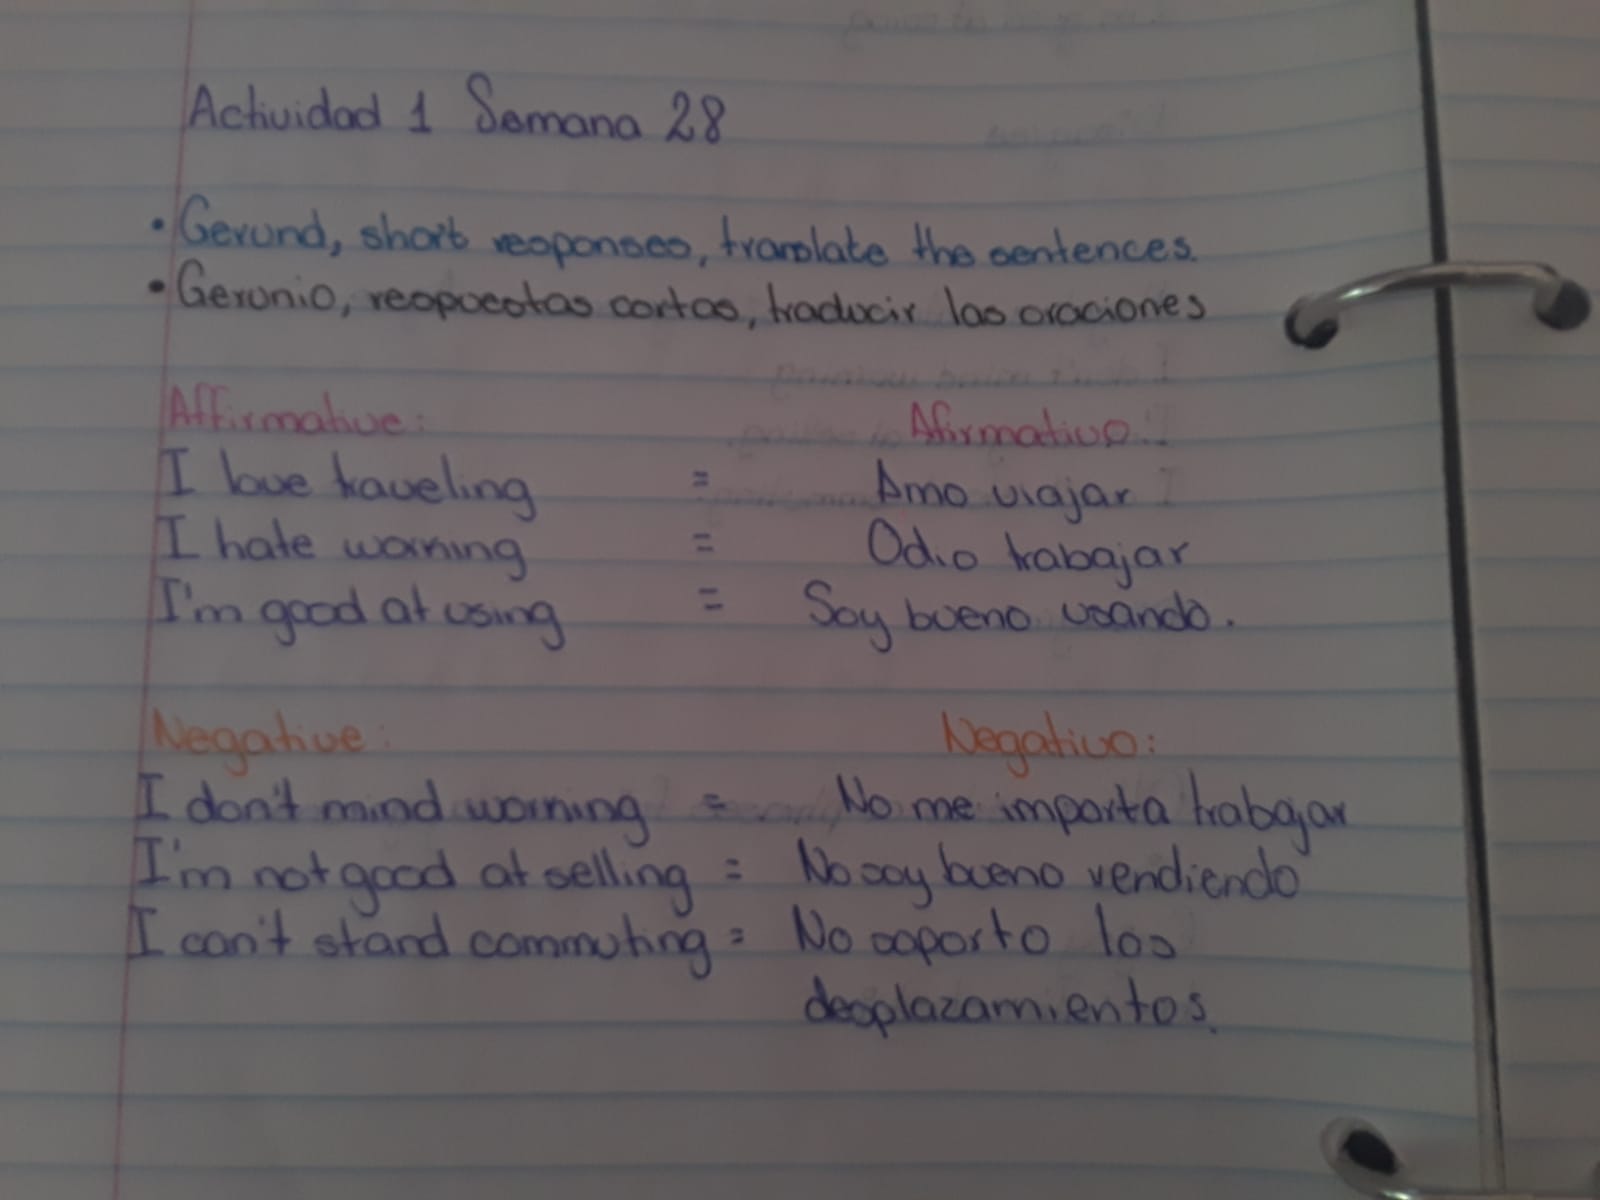 Actividad 1 Semana 28
• Gerund, short responses, translate the sentences.
• Gerunio, respuestas cortas, traducir las oraciones
Affirmative: Afirmativo:
I love traveling = Amo viajar
I hate working = Odio trabajar
I'm good at using = Soy bueno usando.
Negative: Negativo:
I don't mind working = No me importa trabajar
I'm not good at selling = No soy bueno vendiendo
I can't stand commuting = No soporto los
desplazamientos.